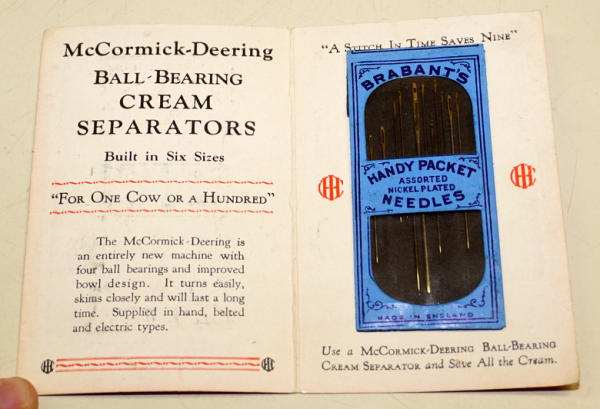 McCormick-Deering
Ball-Bearing
CREAM
SEPARATORS
Built in Six Sizes
"For One Cow or a Hundred"
The McCormick-Deering is
an entirely new machine with
four ball bearings and improved
bowl design. It turns easily,
skims closely and will last a long
time. Supplied in hand, belted
and electric types.
IHC
IHC
"A Stitch In Time Saves Nine"
BRABANT'S
HANDY PACKET
ASSORTED
NICKEL PLATED
NEEDLES
MADE IN ENGLAND
IHC
IHC
Use a McCormick-Deering Ball-Bearing
Cream Separator and Save All the Cream.